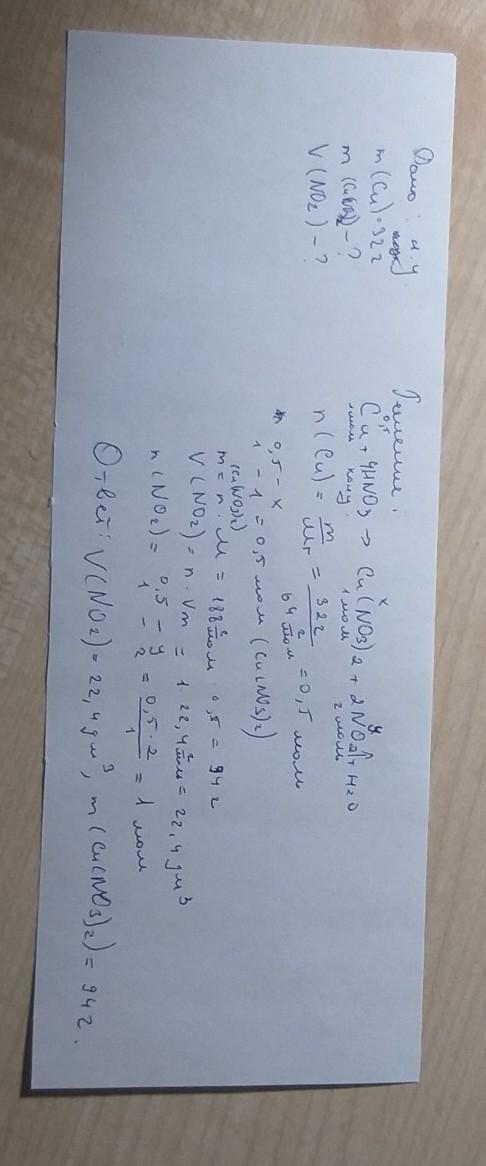 Дано: н.у
m(Cu)=32г
m(Cu(NO3)2)-?
V(NO2)-?
Решение:
0,5 x y
Cu+4HNO3 → Cu(NO3)2+2NO2↑+H2O
1моль конц. 1моль 2моль
n(Cu) = m/Mr = 32г/64г/моль = 0,5 моль
0,5 - x
1 - 1 = 0,5 моль (Cu(NO3)2)
m(Cu(NO3)2) = n·M = 188г/моль · 0,5 = 94г
V(NO2) = n·Vm = 1·22,4 = 22,4 дм³
n(NO2) = 0,5 - y
1 - 2 = 0,5·2/1 = 1 моль
Ответ: V(NO2)=22,4 дм³, m(Cu(NO3)2)=94г.